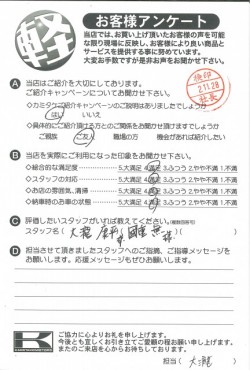 軽
お客様アンケート
当店では、お買い上げ頂いたお客様の声を可能
な限り現場に反映し、お客様により良い商品と
サービスを提供する事に努めています。
大変お手数ですが是非お声をお聞かせ下さい。
A 当店はご紹介を大切にしております。
ご紹介キャンペーンについてお聞かせ下さい。
◇カミタケご紹介キャンペーンのご説明はありましたでしょうか
はい いいえ
◇具体的にご紹介頂ける方とのご関係をお聞かせ頂けますでしょうか
ご親族 ご友人 職場の方 機会があれば紹介したい
2.11.28
B 当店を実際にご利用になった印象をお聞かせ下さい。
◇総合的な満足度 5.大満足 4.満足 3.ふつう 2.やや不満 1.不満
◇スタッフの対応 5.大満足 4.満足 3.ふつう 2.やや不満 1.不満
◇お店の雰囲気、清掃 5.大満足 4.満足 3.ふつう 2.やや不満 1.不満
◇納車時のお車の状態 5.大満足 4.満足 3.ふつう 2.やや不満 1.不満
C 評価したいスタッフがいれば教えてください。(複数回答可)
スタッフ名
D 担当させて頂きましたスタッフへのご指摘、ご指導メッセージを
お願いします。応援メッセージもぜひお願いします。
K
KAMITAKE MOTORS
ご協力に心よりお礼を申し上げます。
今後とも宜しくお引き立てご愛顧の程お願い申し上げます。
またのご来店を心からお待ちしております。
担当( 大瀧 )